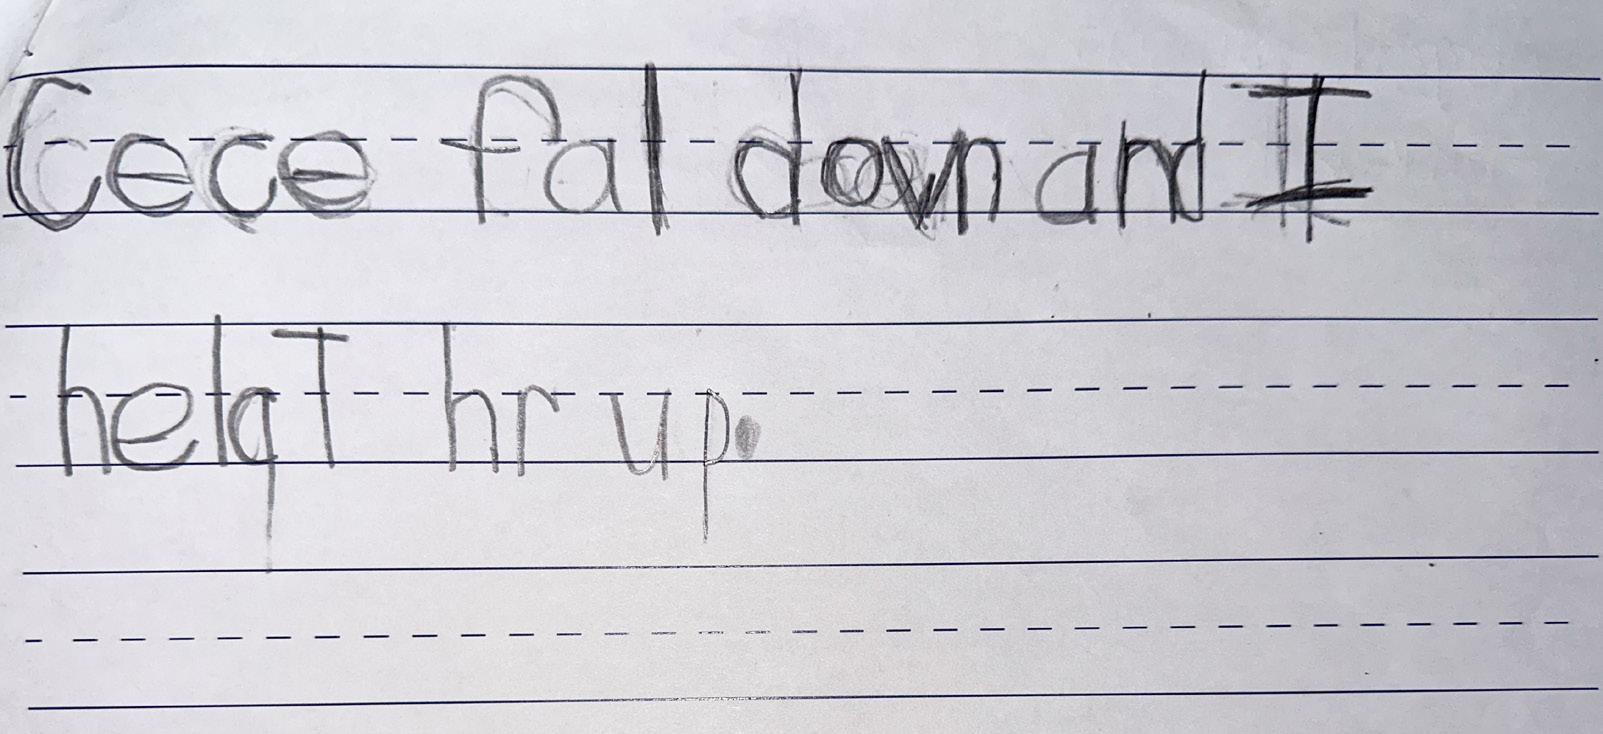 Cece fal down and I
helqT hr up.